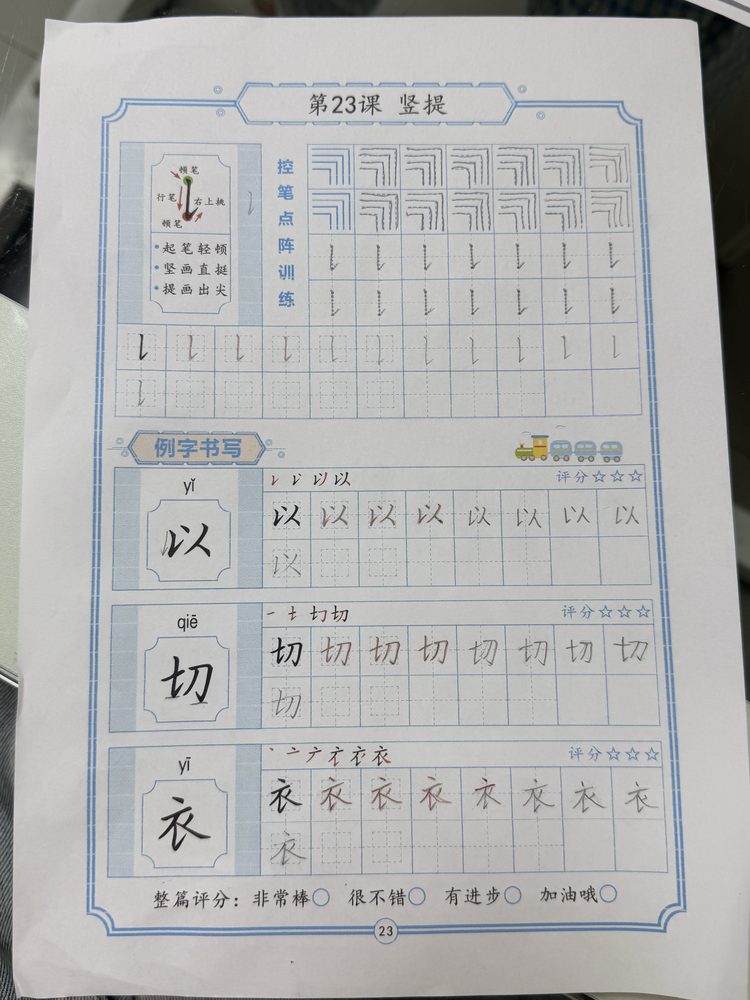 第23课 竖提
顿笔
行笔
右上挑
顿笔
起笔轻顿
坚画直挺
提画出尖
控笔点阵训练
例字书写
yǐ
以
评分☆☆☆
以 以 以 以 以 以 以 以
以
qiē
切
评分☆☆☆
切 切 切 切 切 切 切 切
切
yī
衣
评分☆☆☆
衣 衣 衣 衣 衣 衣 衣 衣
衣
整篇评分：非常棒○ 很不错○ 有进步○ 加油哦○
23